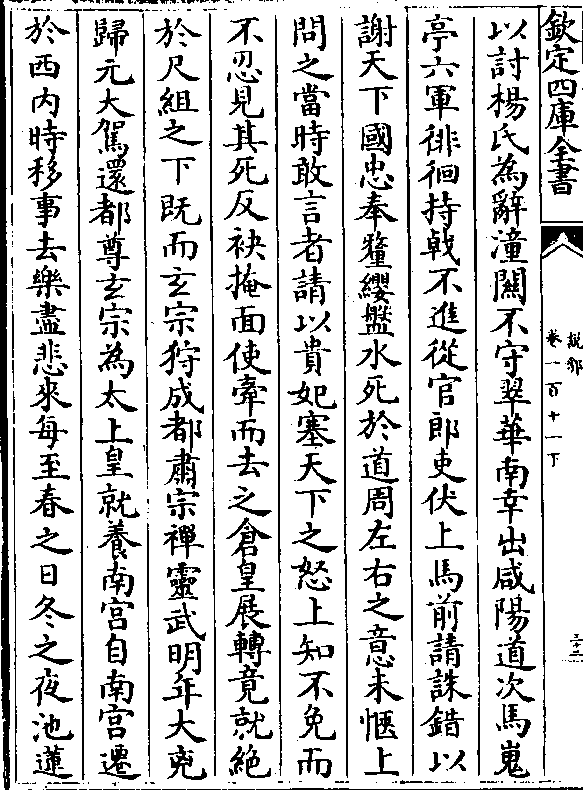 欽定四庫全書
說郛
卷一百十一下
三十三
以討楊氏為辭潼關不守翠華南幸出咸陽道次馬嵬
亭六軍徘徊持戟不進從官郎吏伏上馬前請誅錯以
謝天下國忠奉氂纓盤水死於道周左右之意未愜上
問之當時敢言者請以貴妃塞天下之怒上知不免而
不忍見其死反袂掩面使牽而去之倉皇展轉竟就絕
於尺組之下既而玄宗狩成都肅宗禪靈武明年大兇
歸元大駕還都尊玄宗為太上皇就養南宮自南宮遷
於西內時移事去樂盡悲來每至春之日冬之夜池蓮